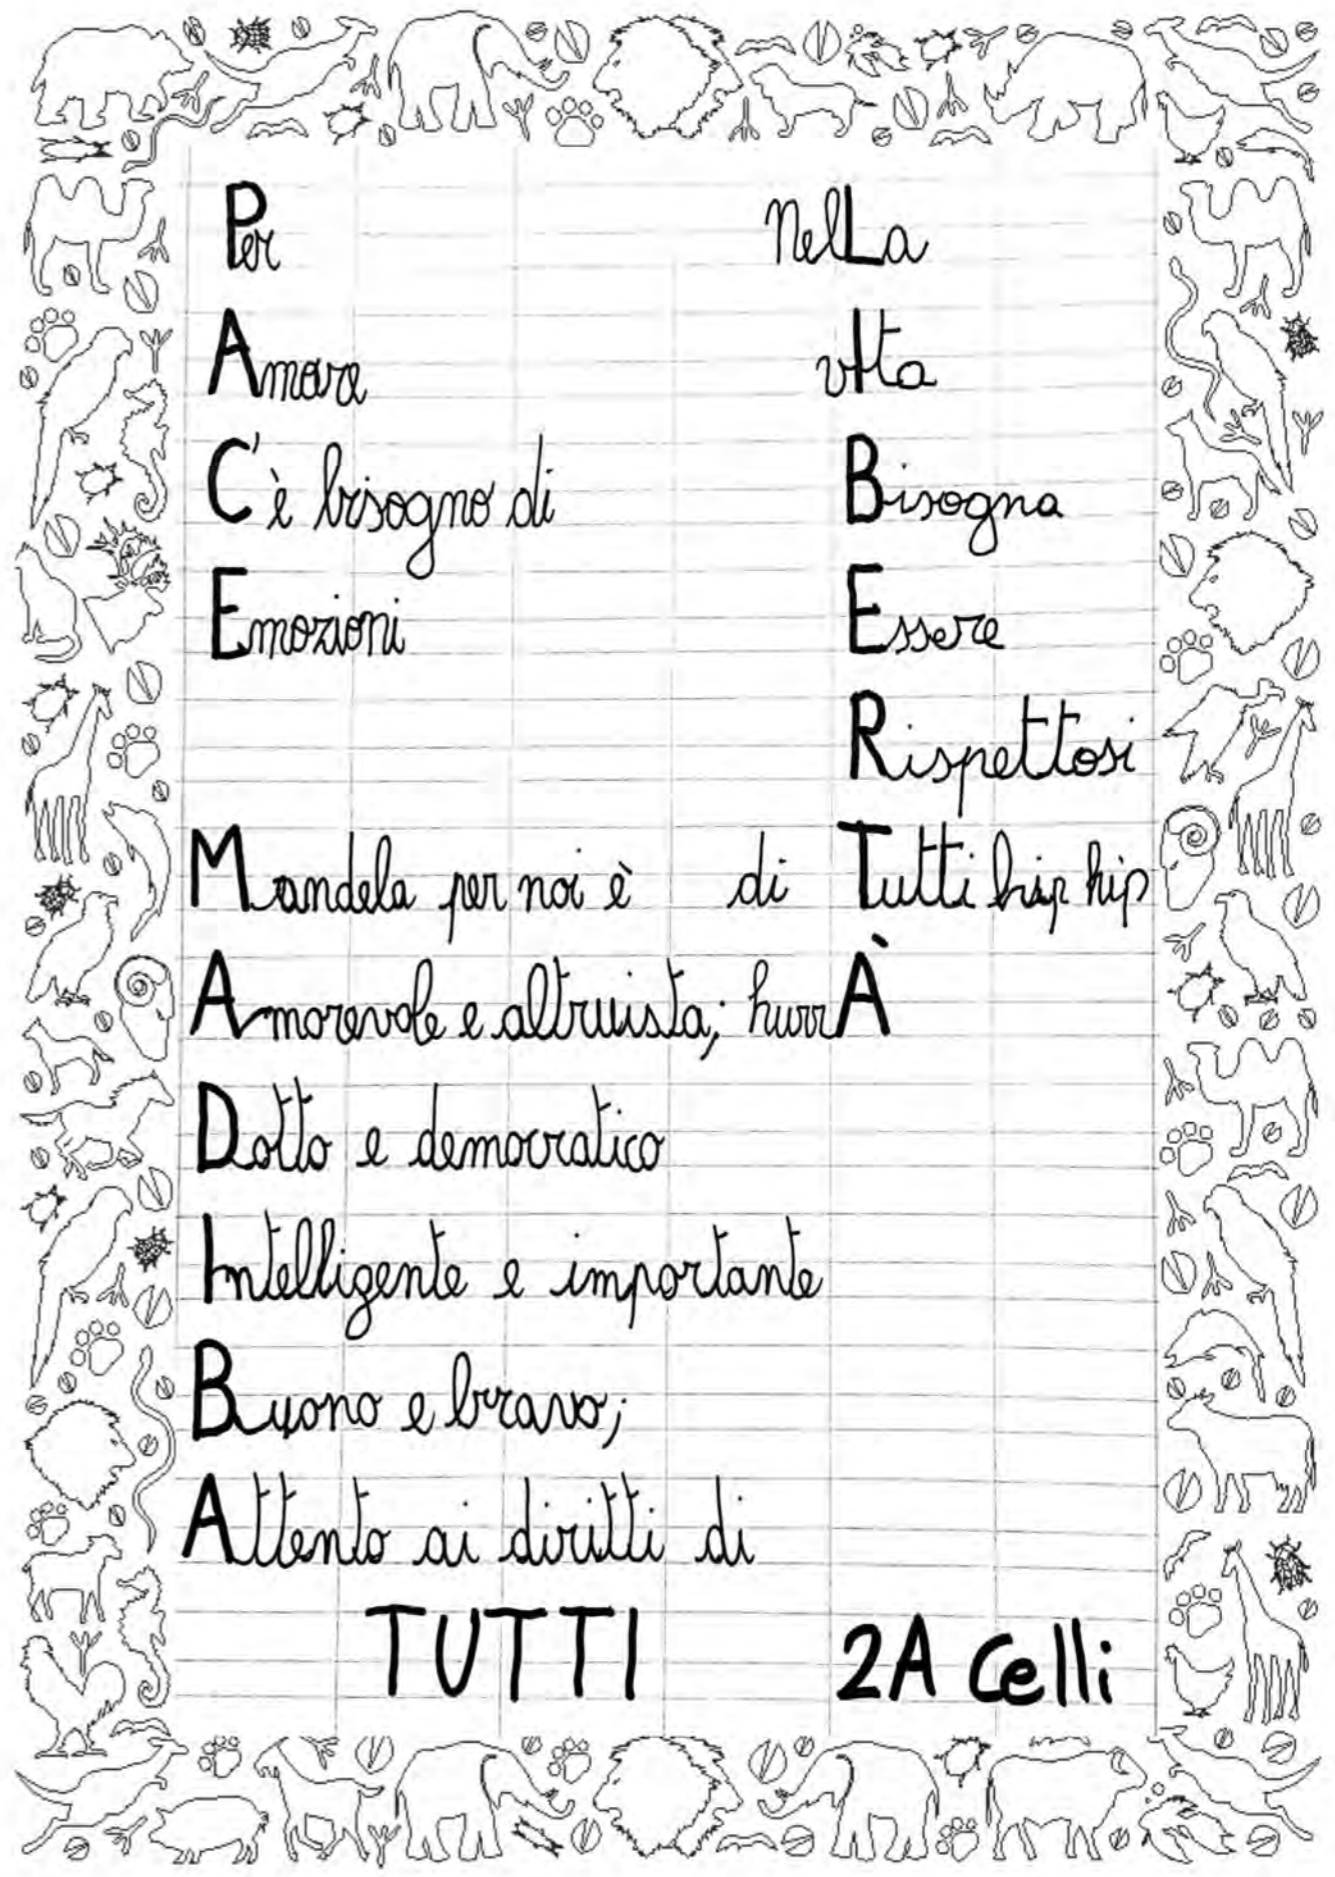 Per nelLa
Amore vIta
C'è bisogno di Bisogna
Emozioni Essere
Rispettosi
Mandela per noi è di Tutti hip hip
Amorevole e altruista; hurrÀ
Dotto e democratico
Intelligente e importante
Buono e bravo;
Attento ai diritti di
TUTTI 2A Celli